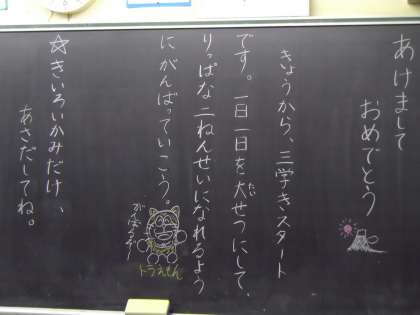 あけまして
おめでとう
きょうから、三学きスタート
です。一日一日を大せつにして、
たい
りっぱな二ねんせいになれるよう
にがんばっていこう。
がんばるぞー
トラえもん
☆きいろいかみだけ、
あさだしてね。